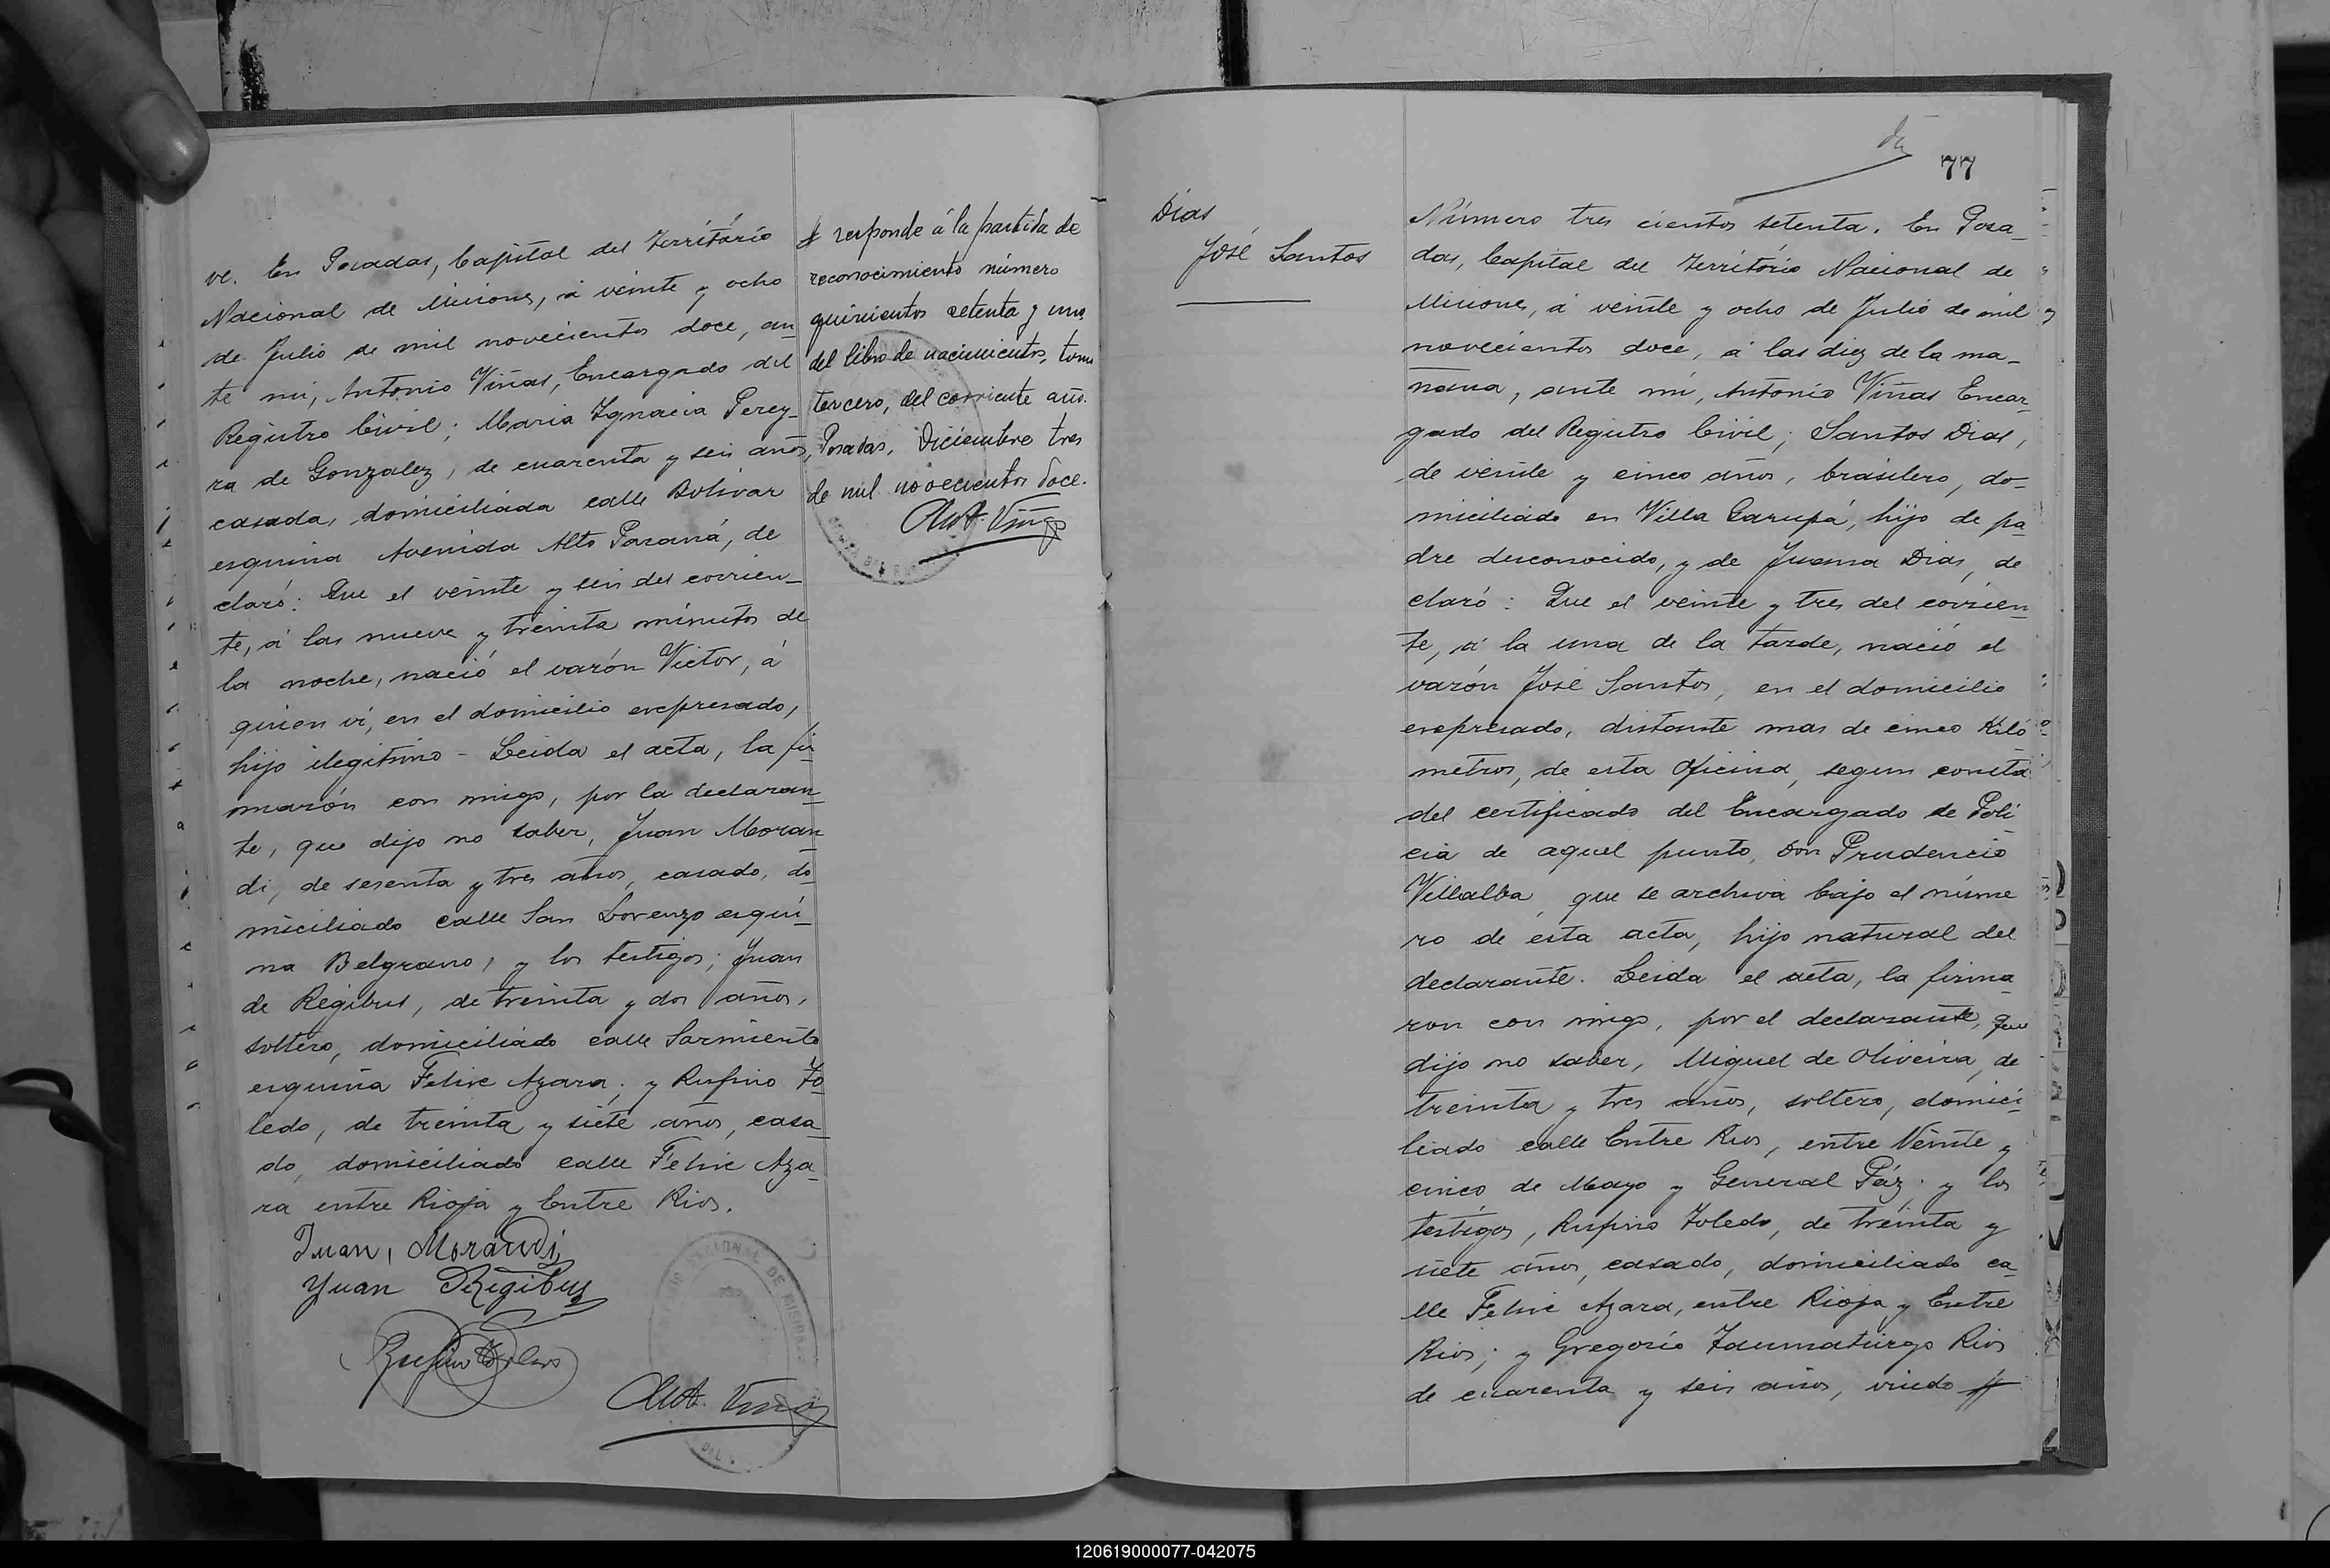 ve. En Posadas, Capital del Territorio
Nacional de Misiones, á veinte y ocho
de Julio de mil novecientos doce, an
te mi, Antonio Viñas, Encargado del
Registro Civil; Maria Ygnacia Perey-
ra de Gonzalez, de cuarenta y seis años,
casada, domiciliada calle Bolivar
esquina Avenida Alto Paraná, de
claró: Que el veinte y seis del corrien-
te, á las nueve y treinta minutos de
la noche, nació el varón Victor, á
quien ví, en el domicilio expresado,
hijo ilegitimo - Leida el acta, la fir
marón con migo, por la declaran-
te, que dijo no saber, Juan Moran
di, de sesenta y tres años, casado, do
miciliado calle San Lorenzo esqui-
na Belgrano, y los testigos; Juan
de Regibus, de treinta y dos años,
soltero, domiciliado calle Sarmiento
esquina Felix Azara; y Rufino To
ledo, de treinta y siete años, casa
do, domiciliado calle Felix Aza-
ra entre Rioja y Entre Rios.
Juan, Morandi
Yuan DRegibus
Rufino Toledo
Ant. Viñas
responde á la partida de
reconocimiento número
quinientos setenta y uno
del libro de nacimientos, tomo
tercero, del corriente año.
Posadas, Diciembre tres
de mil novecientos doce.
Ant. Viñas
Dias
José Santos
77
Número tres cientos setenta. En Posa-
das, Capital del Territorio Nacional de
Misiones, á veinte y ocho de Julio de mil
novecientos doce, á las diez de la ma-
ñana, ante mi, Antonio Viñas Encar-
gado del Registro Civil; Santos Dias,
de veinte y cinco años, brasilero, do-
miciliado en Villa Garupá, hijo de pa
dre desconocido, y de Juana Dias, de
claró: Que el veinte y tres del corrien
te, á la una de la tarde, nació el
varón José Santos, en el domicilio
expresado, distante mas de cinco Kiló
metros, de esta Oficina, segun consta
del certificado del Encargado de Poli
cia de aquel punto, Don Prudencio
Villalba, que se archiva bajo el núme
ro de esta acta, hijo natural del
declarante. Leida el acta, la firma
ron con migo, por el declarante, que
dijo no saber, Miguel de Oliveira, de
treinta y tres años, soltero, domici-
liado calle Entre Rios, entre Veinte y
cinco de Mayo y General Páz; y los
testigos, Rufino Toledo, de treinta y
siete años, casado, domiciliado ca-
lle Felix Azara, entre Rioja y Entre
Rios; y Gregorio Taumaturgo Rios
de cuarenta y seis años, viudo
120619000077-042075